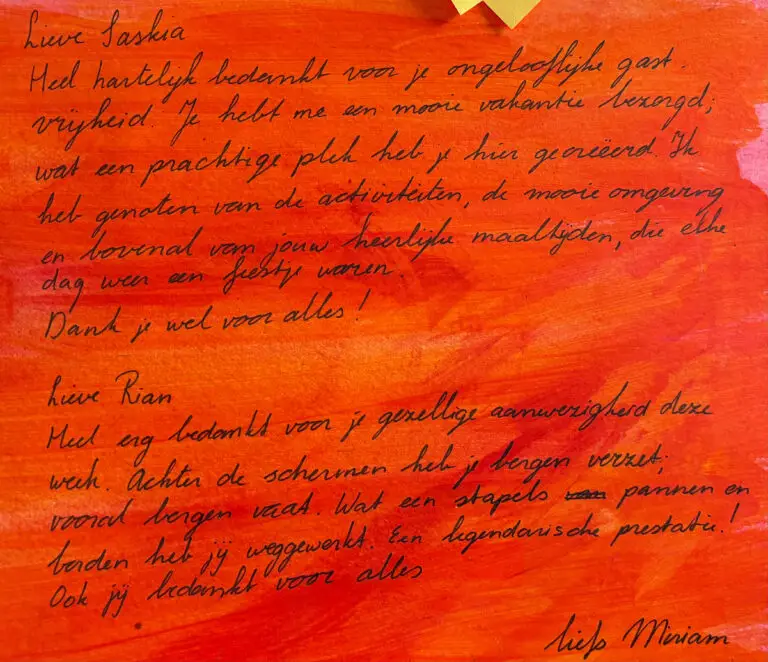 Lieve Saskia
Heel hartelijk bedankt voor je ongelooflijke gast-
vrijheid. Je hebt me een mooie vakantie bezorgd;
wat een prachtige plek heb je hier gecreëerd. Ik
heb genoten van de activiteiten, de mooie omgeving
en bovenal van jouw heerlijke maaltijden, die elke
dag weer een feestje waren.
Dank je wel voor alles!
Lieve Rian
Heel erg bedankt voor je gezellige aanwezigheid deze
week. Achter de schermen heb je bergen verzet;
vooral bergen vaat. Wat een stapels pannen en
borden heb jij weggewerkt. Een legendarische prestatie!
Ook jij bedankt voor alles
liefs Miriam